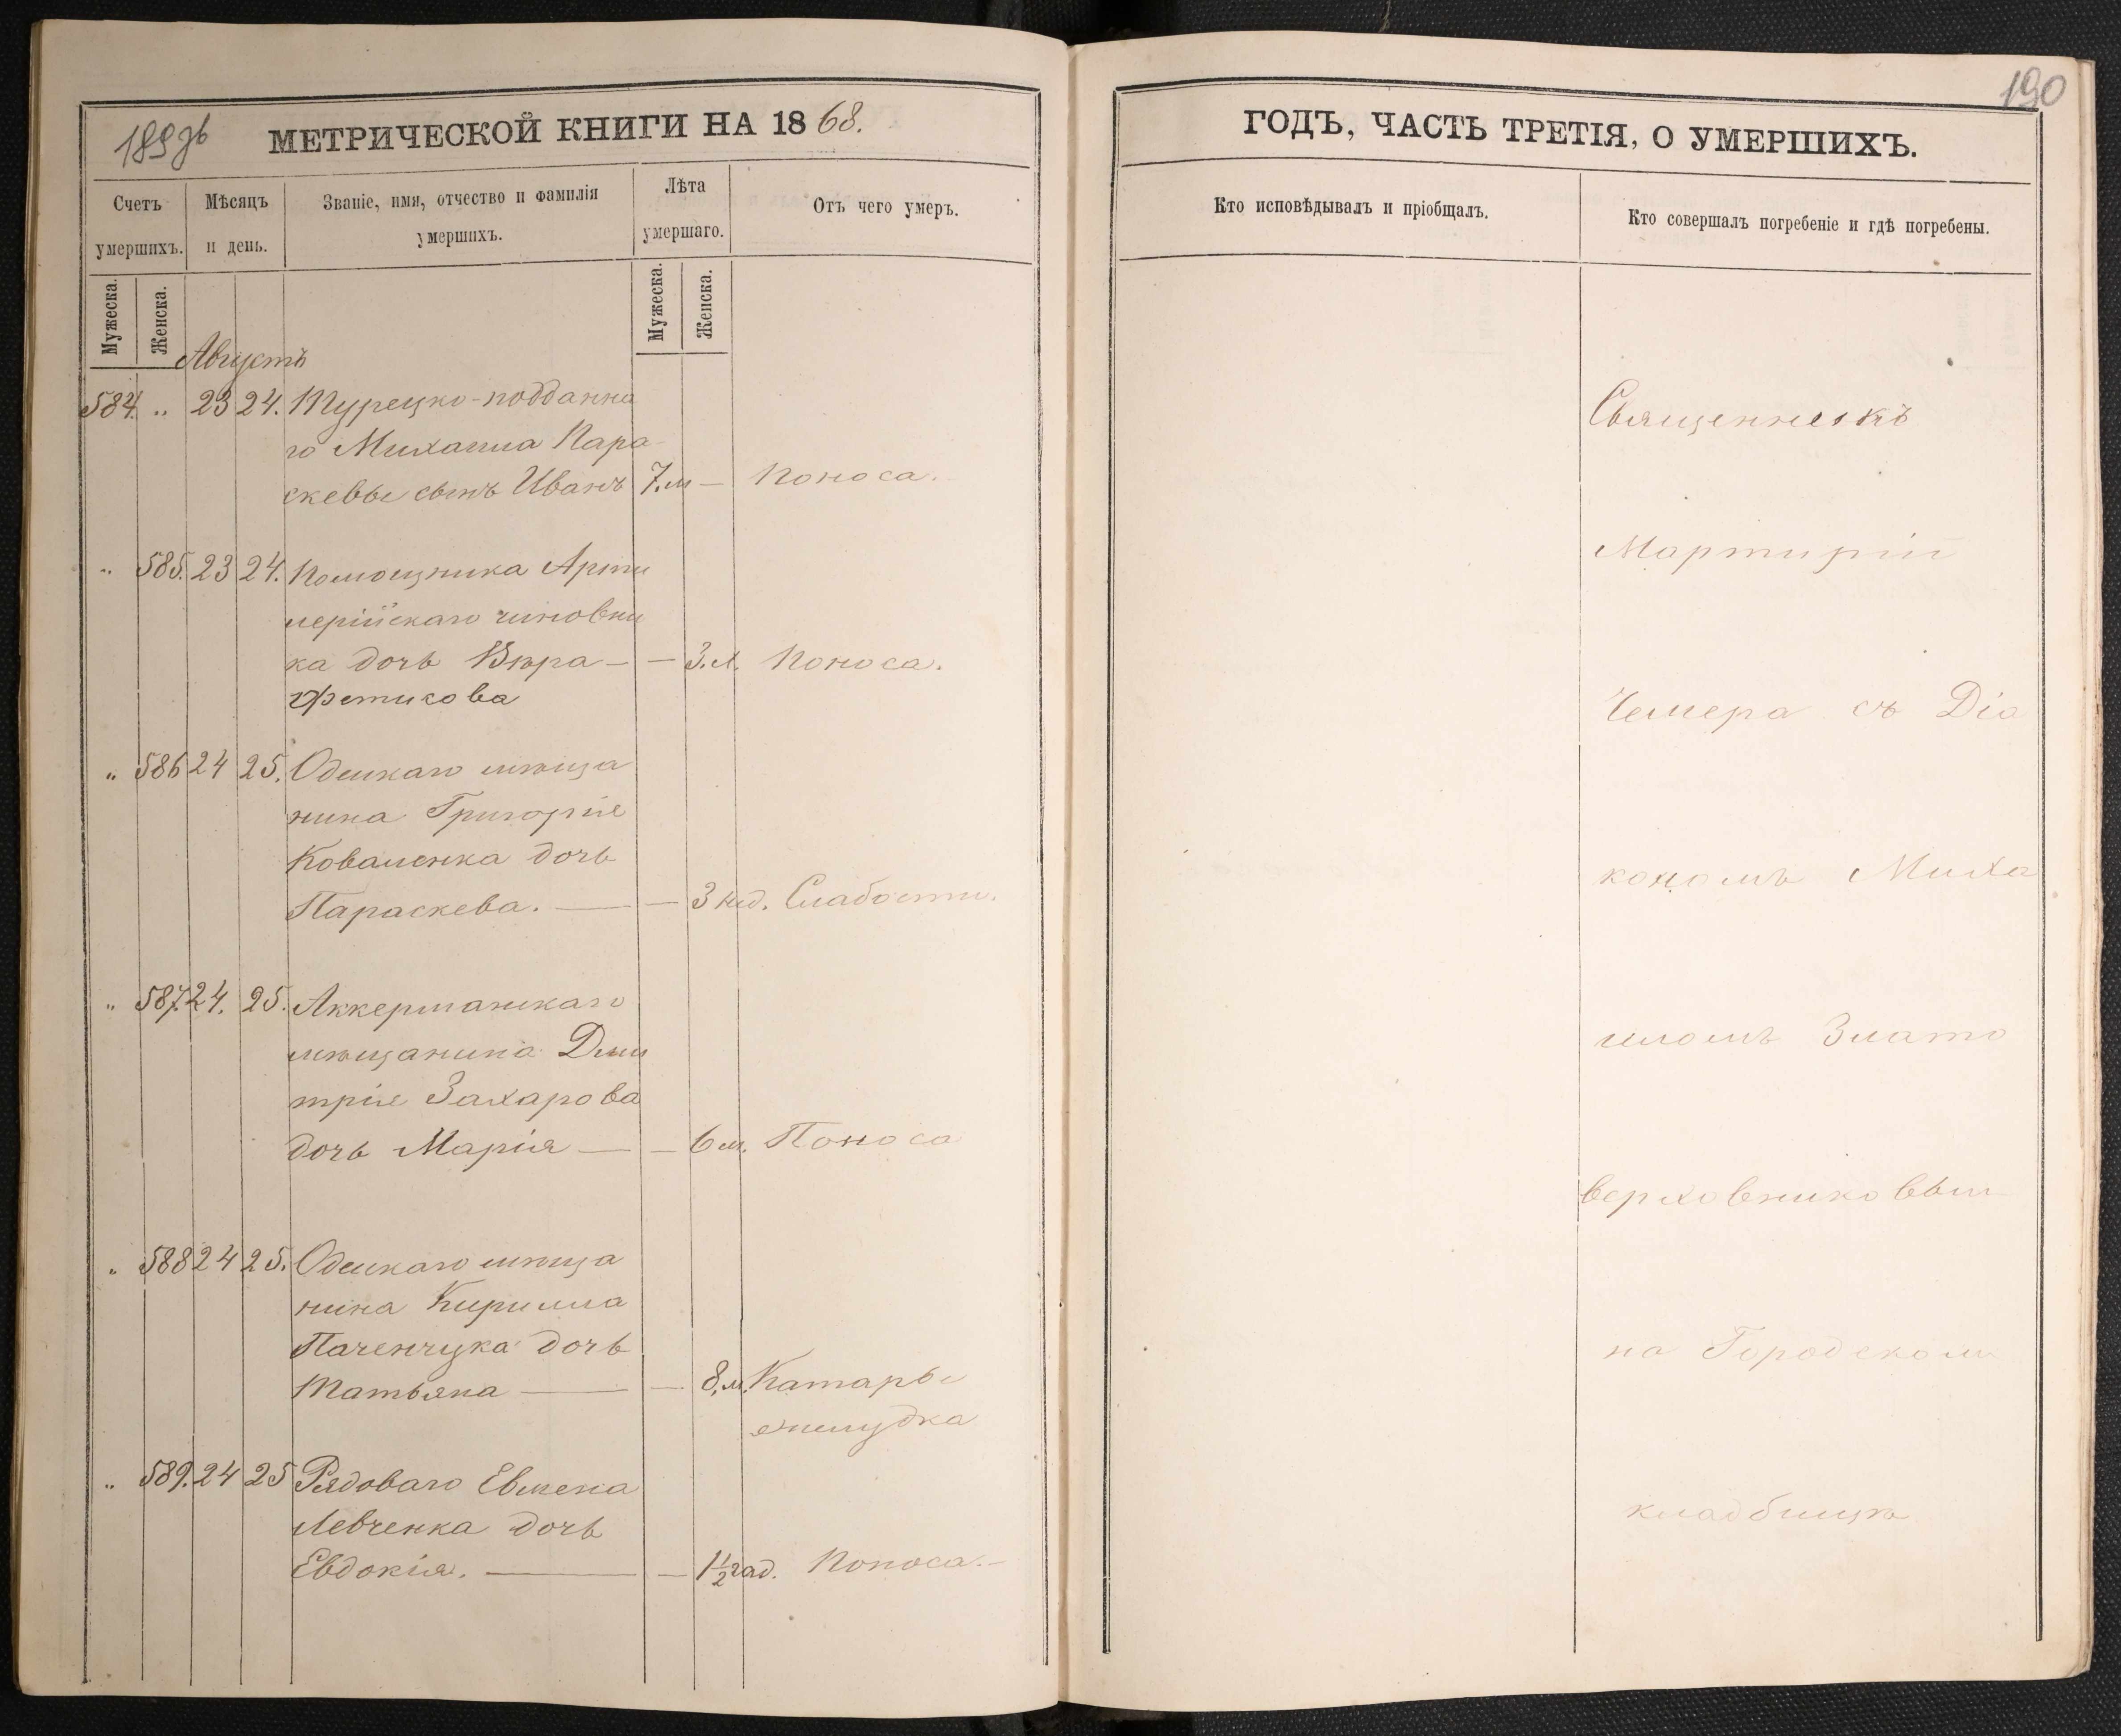 189об
МЕТРИЧЕСКОЙ КНИГИ НА 1868.
Счетъ умершихъ.
Мѣсяцъ и день.
Званіе, имя, отчество и фамилія умершихъ.
Лѣта умершаго.
Отъ чего умеръ.
Мужеска.
Женска.
Мужеска.
Женска.
Августъ
584. „ 23 24. Турецко-подданна
го Михаила Пара
скевы сынъ Иванъ 7.м — Поноса.
„ 585. 23 24. Помощника Арти
лерійскаго чиновни
ка дочь Вѣра — — 3.л. Поноса.
„ 586 24 25. Одескаго мѣща
нина Григорія
Коваленка дочь
Параскева. — — 3 нед. Слабости.
„ 587. 24. 25. Аккерманскаго
мѣщанина Дми
трія Захарова
дочь Марія — — 6 м. Поноса
„ 588 24 25. Одескаго мѣща
нина Кирилла
Паченчука дочь
Татьяна — — 8.м. Катарь
желудка
„ 589. 24 25 Рядоваго Евмена
Левченка дочь
Евдокія. — — 1 1/2 год. Поноса. —
190
ГОДЪ, ЧАСТЬ ТРЕТІЯ, О УМЕРШИХЪ.
Кто исповѣдывалъ и пріобщалъ.
Кто совершалъ погребеніе и гдѣ погребены.
Священникъ
Мартирій
Чемера съ Діа
кономъ Миха
иломъ Злато
верховниковым
на Городском
кладбищѣ